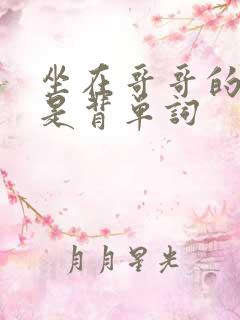 坐在哥哥的
是背单词
月月星光